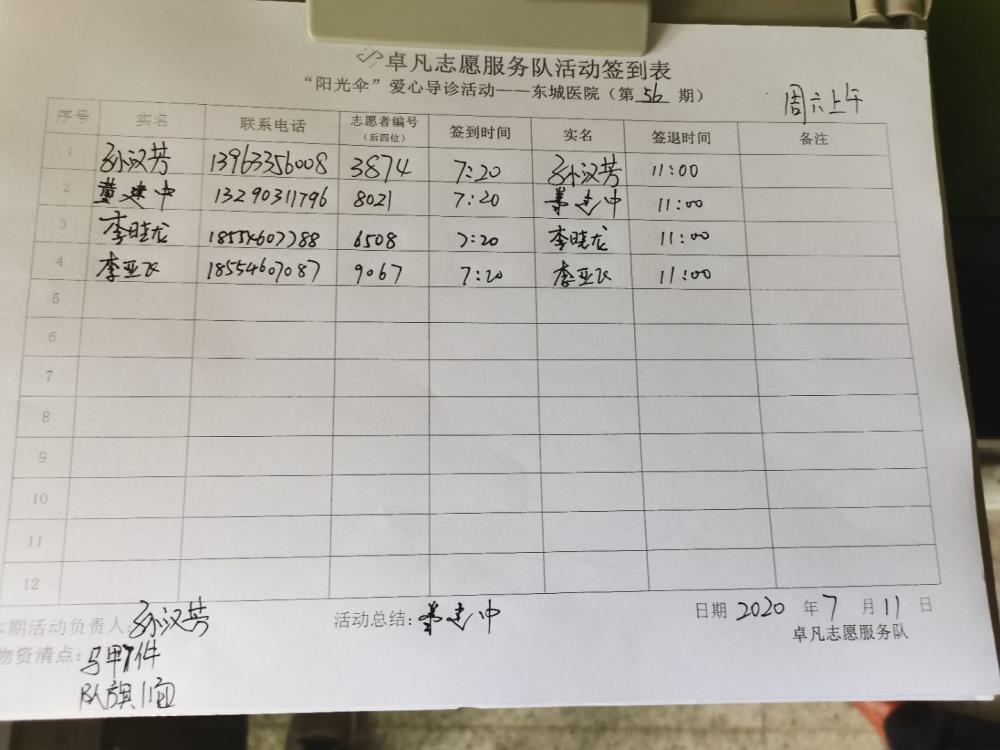 卓凡志愿服务队活动签到表
“阳光伞”爱心导诊活动——东城医院（第56期）
周六上午
序号 实名 联系电话 志愿者编号（后四位） 签到时间 实名 签退时间 备注
1 孙汉芳 13963356008 3874 7:20 孙汉芳 11:00
2 董建中 13290311796 8021 7:20 董建中 11:00
3 李晓龙 18554607788 6508 7:20 李晓龙 11:00
4 李亚飞 18554607087 9067 7:20 李亚飞 11:00
5
6
7
8
9
10
11
12
本期活动负责人：孙汉芳 活动总结：董建中 日期 2020 年 7 月 11 日
卓凡志愿服务队
物资清点：马甲7件
队旗1面